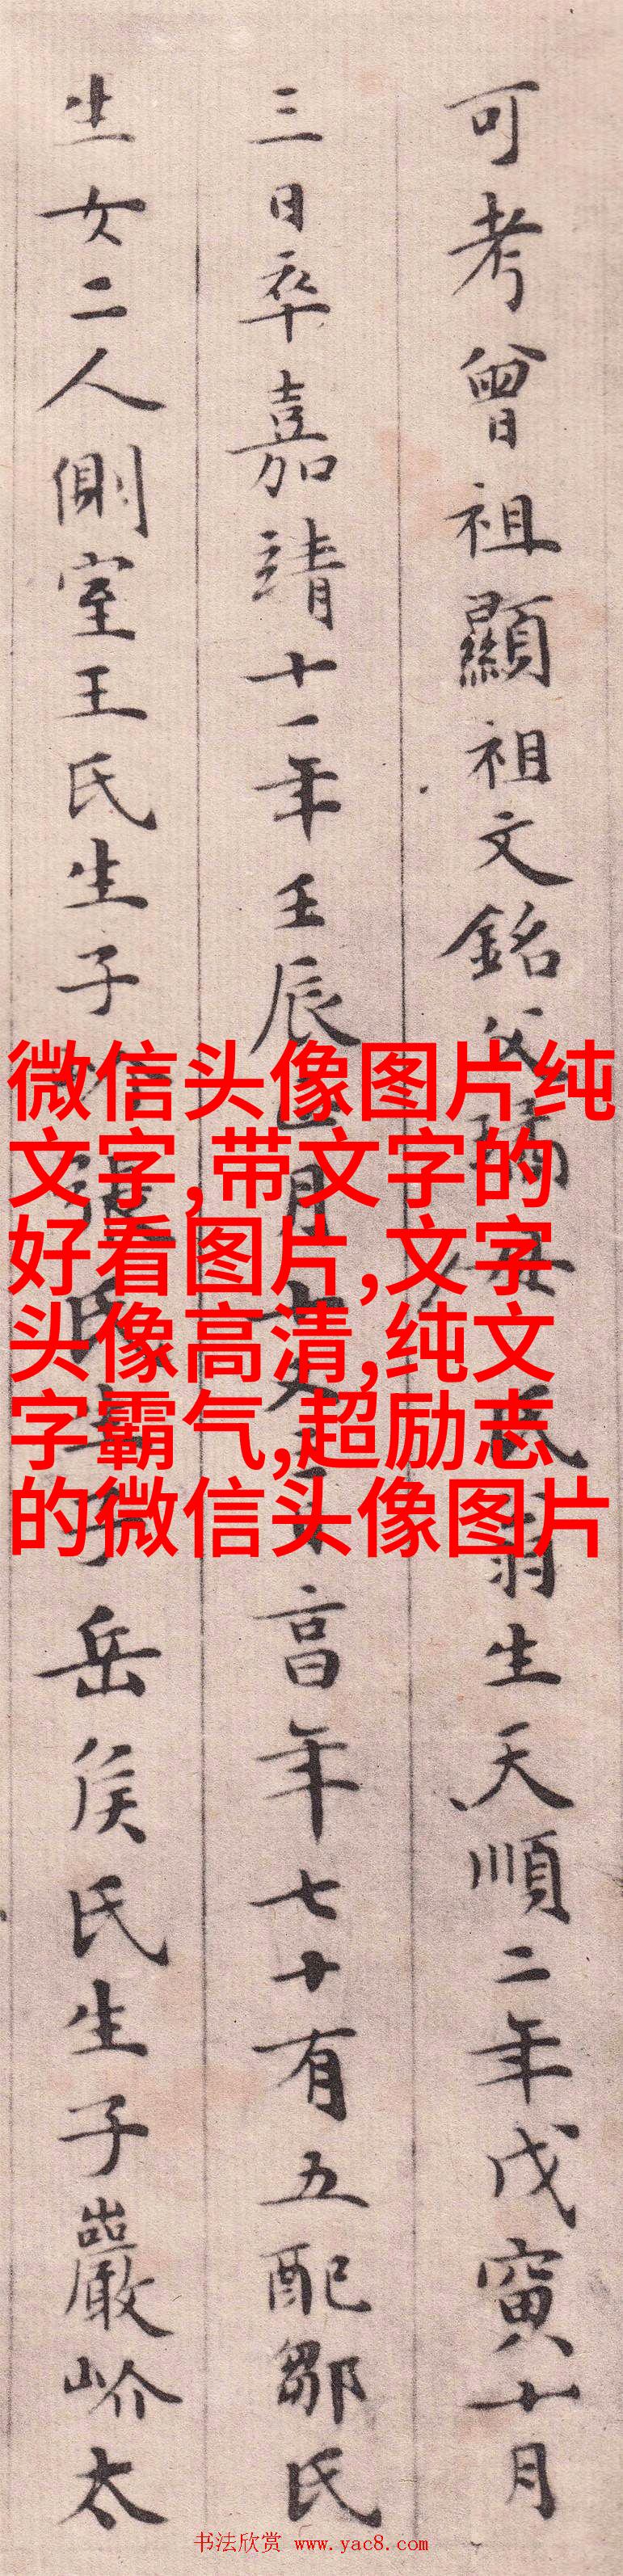 可考曾祖顯祖文銘父氏翁生天順二年戊寅十月
三日卒嘉靖十一年壬辰正月亯年七十有五配鄒氏
生女二人側室王氏生子張氏生子岳侯氏生子巖岕太
微信头像图片纯
文字,带文字的
好看图片,文字
头像高清,纯文
字霸气,超励志
的微信头像图片
书法欣赏 www.yac8.com